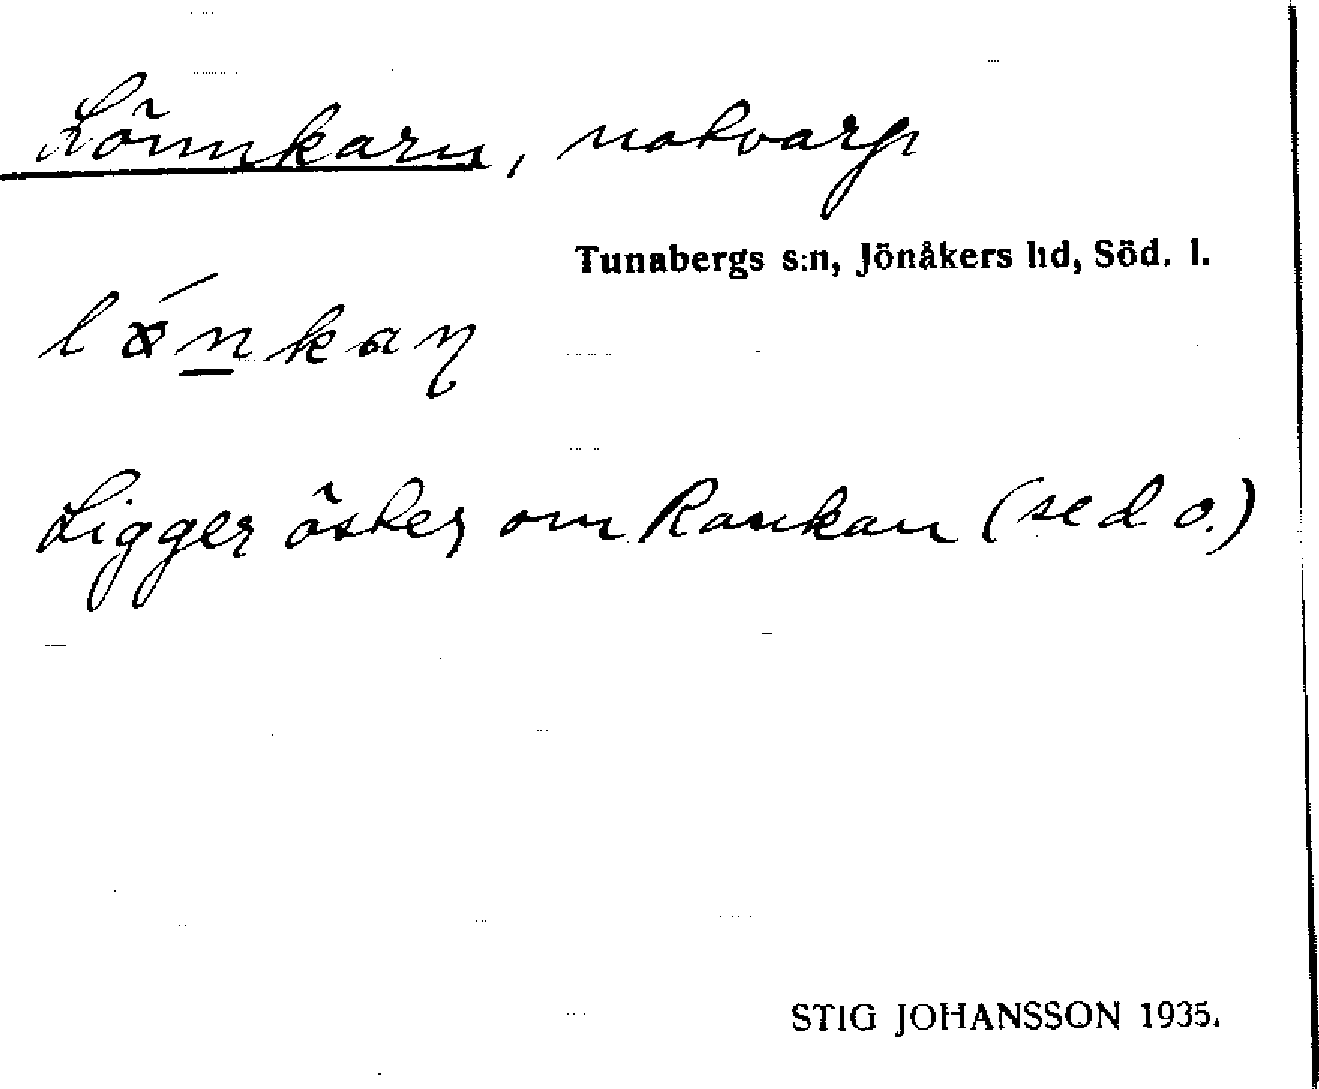 Lönnkarn, notvarp
Tunabergs s:n, Jönåkers hd, Söd. l.
Ligger öster om Rankan (se d o.)
STIG JOHANSSON 1935.